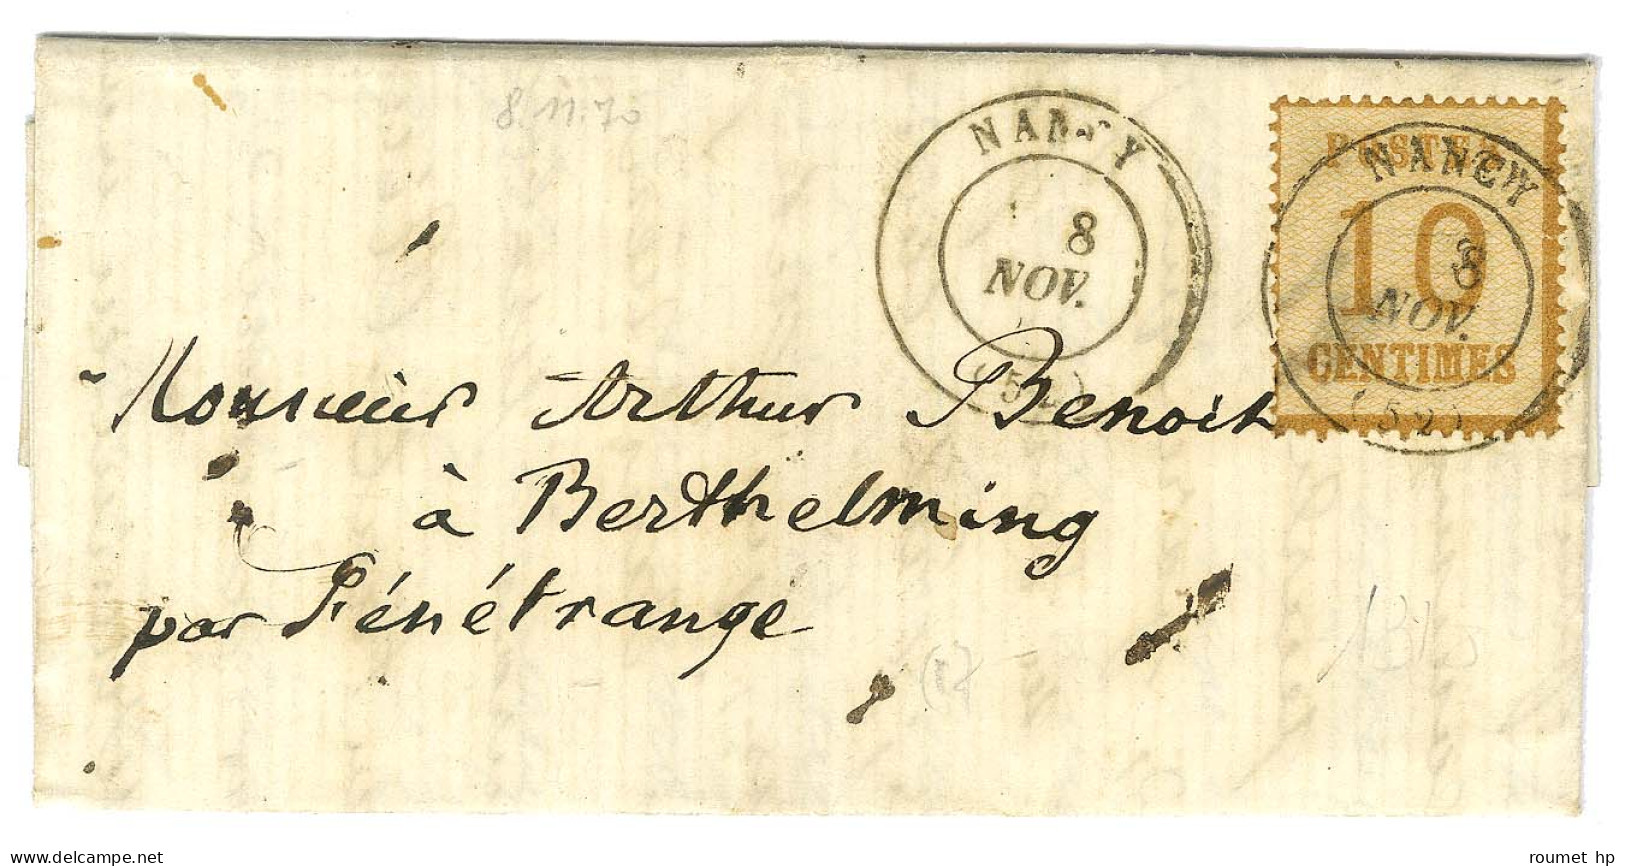 8.11.70
NANCY
8
NOV.
(52)
POSTES
10
CENTIMES
NANCY
8
NOV.
(52)
Monsieur Arthur Benoit
à Berthelming
par Fénétrange
(17
www.delcampe.net
roumet hp